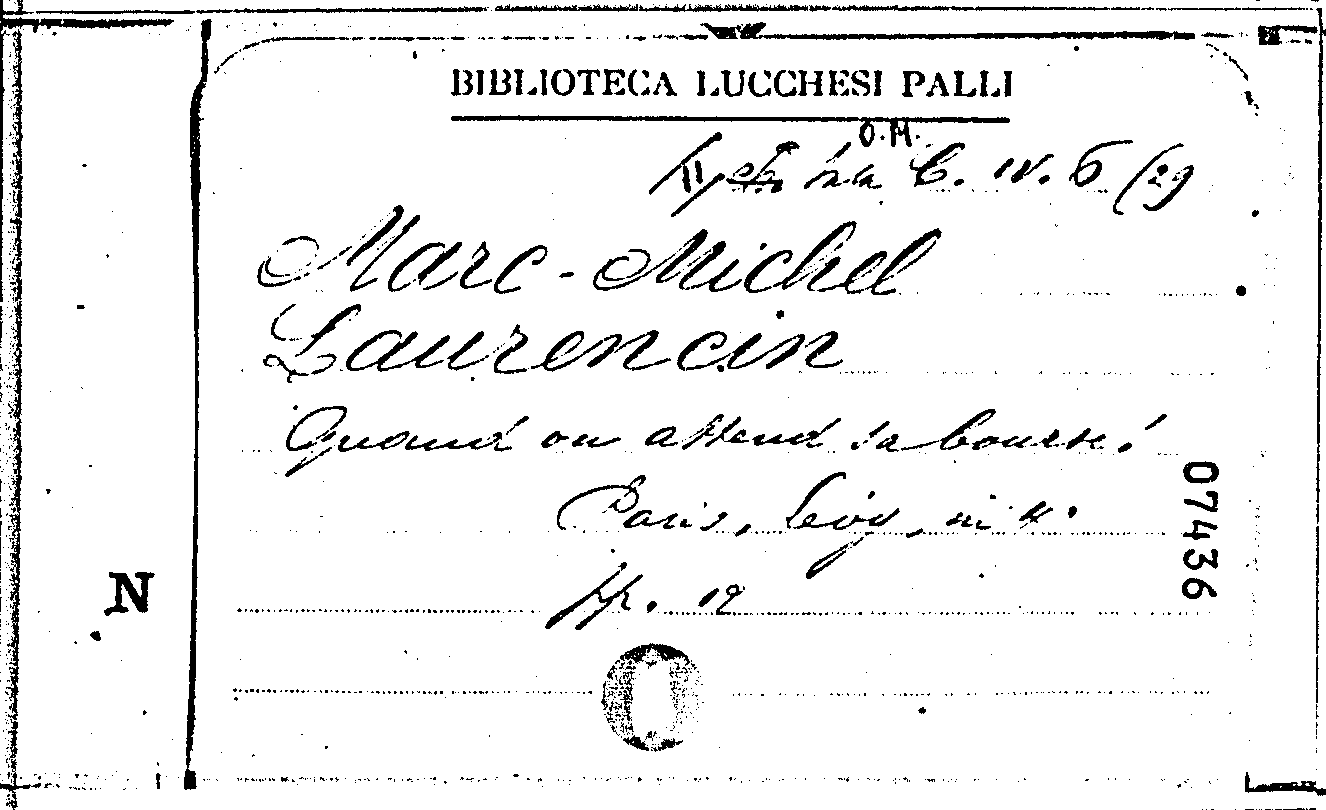 BIBLIOTECA LUCCHESI PALLI
O.M.
Sala C. IV. 6 (29
Marc-Michel
Laurencin
Quand on attend sa bourse!
Paris, Lévy, in 4°
pp. 12
07436
N